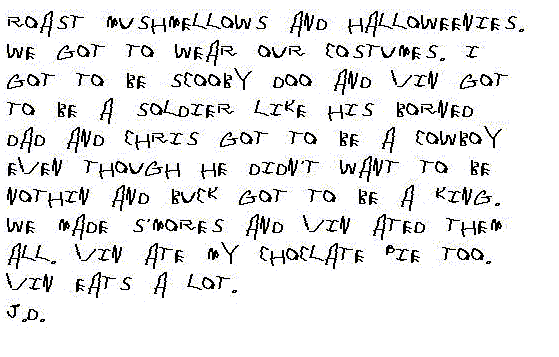 ROAST MUSHMELLOWS AND HALLOWEENIES.
WE GOT TO WEAR OUR COSTUMES. I
GOT TO BE SCOOBY DOO AND VIN GOT
TO BE A SOLDIER LIKE HIS BORNED
DAD AND CHRIS GOT TO BE A COWBOY
EVEN THOUGH HE DIDN'T WANT TO BE
NOTHIN AND BUCK GOT TO BE A KING.
WE MADE S'MORES AND VIN ATED THEM
ALL. VIN ATE MY CHOCLATE PIE TOO.
VIN EATS A LOT.
J.D.